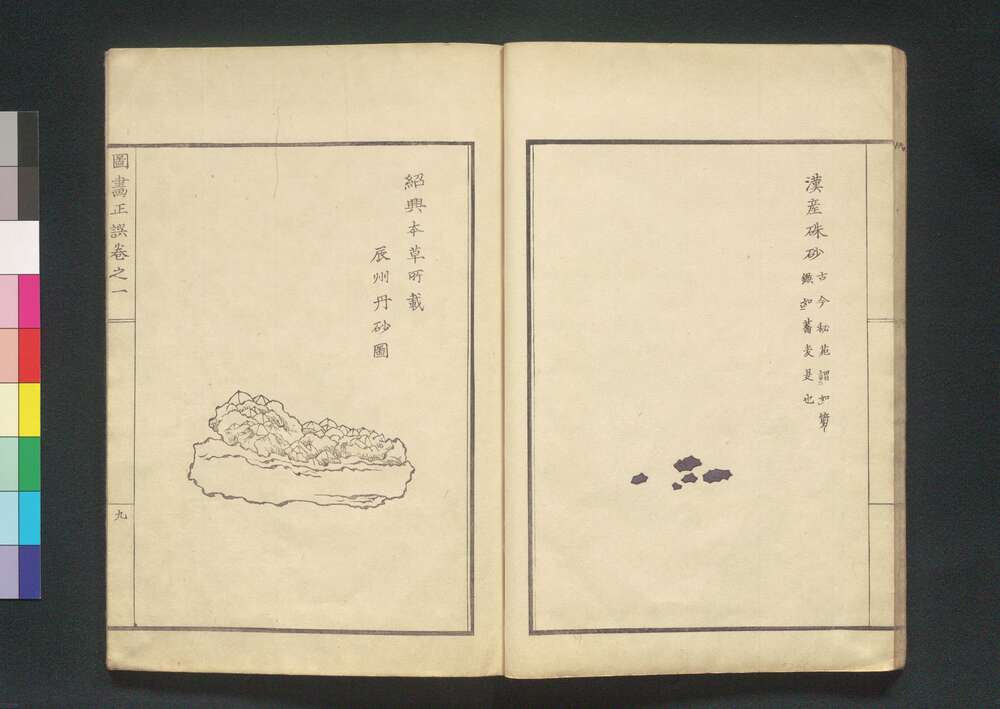 漢産硃砂
古今秘苑謂如箭
鏃如蕎麦是也
紹興本草所載
辰州丹砂圖
圖畫正誤卷之一
九